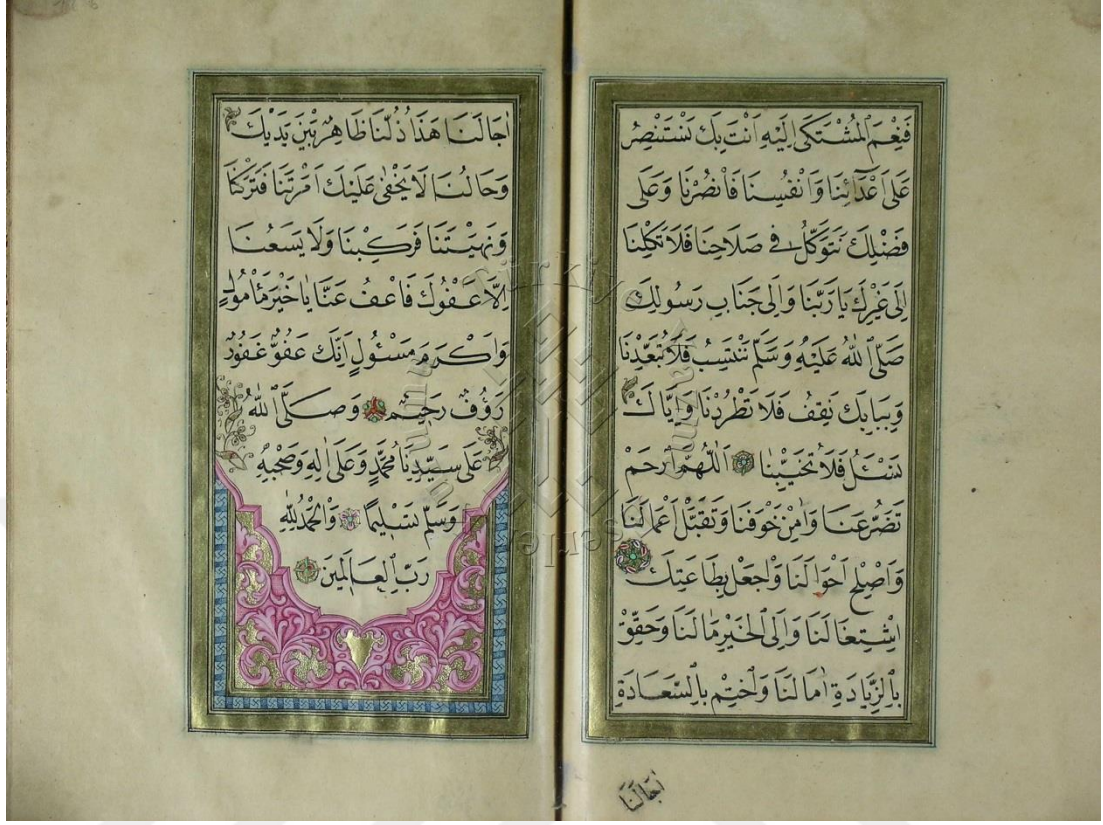 فَنِعْمَ الْمُشْتَكَى اِلَيْهِ اَنْتَ بِكَ نَسْتَنْصِرُ
عَلَى اَعْدَآئِنَا وَاَنْفُسِنَا فَانْصُرْنَا وَعَلَى
فَضْلِكَ نَتَوَكَّلُ فِى صَلَاحِنَا فَلَا تَكِلْنَا
اِلَى غَيْرِكَ يَا رَبَّنَا وَاِلَى جَنَابِ رَسُولِكَ
صَلَّى اللّٰهُ عَلَيْهِ وَسَلَّمَ نَنْتَسِبُ فَلَا تُبَعِّدْنَا
وَبِبَابِكَ نَقِفُ فَلَا تَطْرُدْنَا وَاِيَّاكَ
نَسْئَلُ فَلَا تُخَيِّبْنَا اَللّٰهُمَّ ارْحَمْ
تَضَرُّعَنَا وَاٰمِنْ خَوْفَنَا وَتَقَبَّلْ اَعْمَالَنَا
وَاَصْلِحْ اَحْوَالَنَا وَاجْعَلْ بِطَاعَتِكَ
اِشْتِغَالَنَا وَاِلَى الْخَيْرِ مَاٰلَنَا وَحَقِّقْ
بِالزِّيَادَةِ اٰمَالَنَا وَاخْتِمْ بِالسَّعَادَةِ
اٰجَالَنَا
اٰجَالَنَا هَذَا ذُلُّنَا ظَاهِرٌ بَيْنَ يَدَيْكَ
وَحَالُنَا لَا يَخْفٰى عَلَيْكَ اَمَرْتَنَا فَتَرَكْنَا
وَنَهَيْتَنَا فَرَكِبْنَا وَلَا يَسَعُنَا
اِلَّا عَفْوُكَ فَاعْفُ عَنَّا يَا خَيْرَ مَاْمُولٍ
وَاَكْرَمَ مَسْئُولٍ اِنَّكَ عَفُوٌّ غَفُورٌ
رَؤُفٌ رَحِيمٌ وَصَلَّى اللّٰهُ
عَلَى سَيِّدِنَا مُحَمَّدٍ وَعَلَى اٰلِهِ وَصَحْبِهِ
وَسَلَّمَ تَسْلِيمًا وَالْحَمْدُ لِلّٰهِ
رَبِّ الْعَالَمِينَ